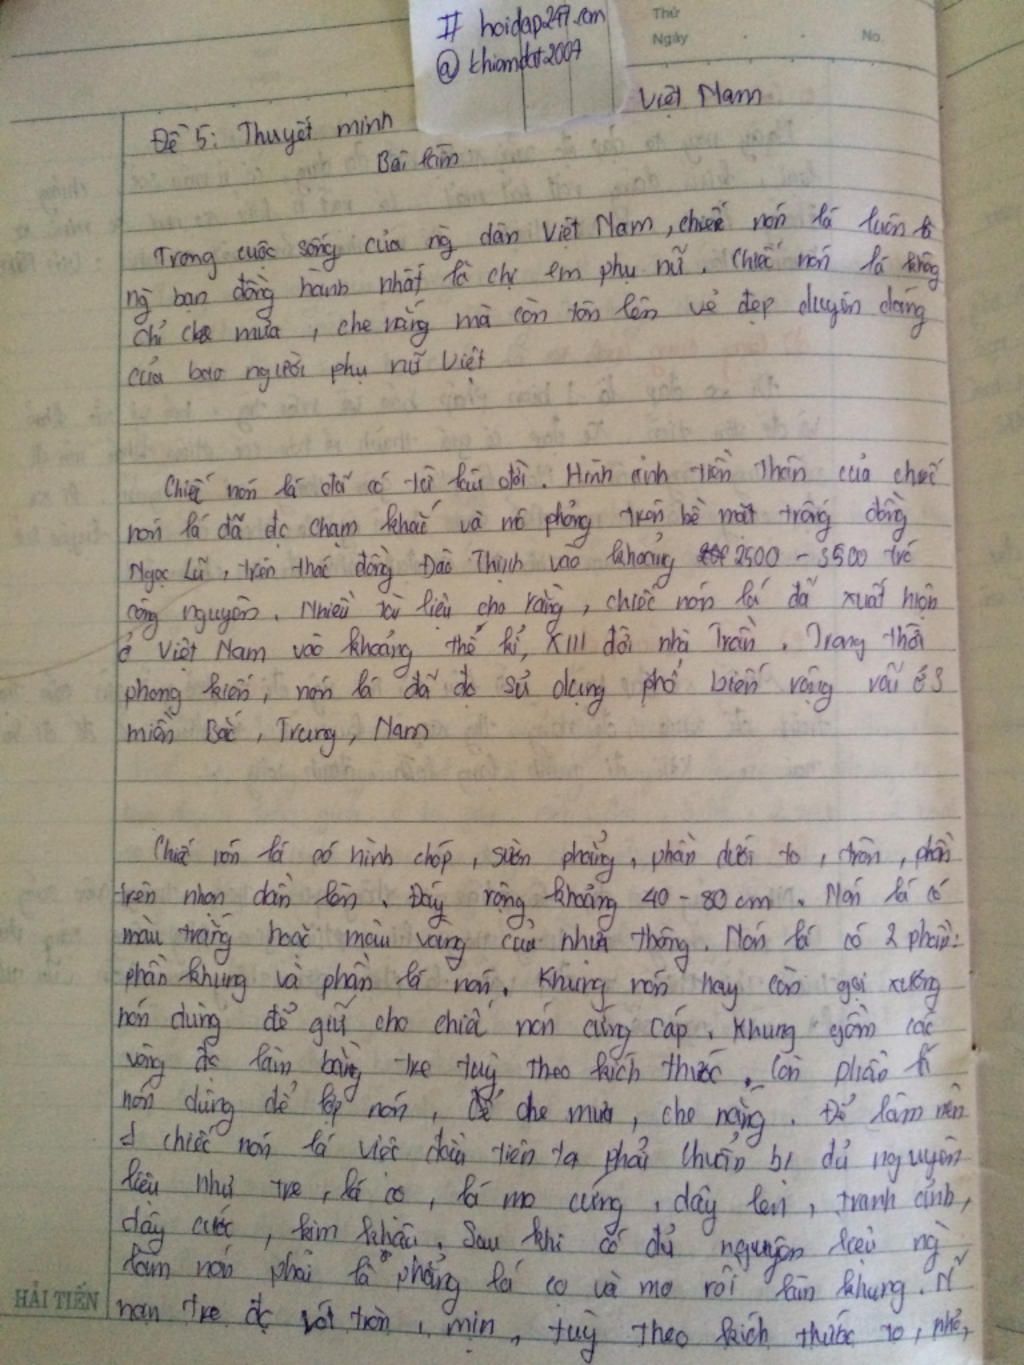 # hoidap247.com
@ khiamdat2007
Thứ
Ngày . . No.
Đề 5: Thuyết minh Việt Nam
Bài làm
Trong cuộc sống của ng dân Việt Nam, chiếc nón lá luôn là
ng bạn đồng hành nhất là chị em phụ nữ. Chiếc nón lá không
chỉ che mưa, che nắng mà còn tôn lên vẻ đẹp duyên dáng
của bao người phụ nữ Việt
Chiếc nón lá đã có từ lâu đời. Hình ảnh tiền thân của chiếc
nón lá đã đc chạm khắc và mô phỏng trên bề mặt trống đồng
Ngọc Lũ, trên thác đồng Đào Thịnh vào khoảng 2500 - 3500 trc
công nguyên. Nhiều tài liệu cho rằng, chiếc nón lá đã xuất hiện
ở Việt Nam vào khoảng thế kỉ XIII đời nhà Trần. Trong thời
phong kiến, nón lá đã đc sử dụng phổ biến rộng rãi ở 3
miền Bắc, Trung, Nam
Chiếc nón lá có hình chóp, sườn phẳng, phần dưới to, tròn, phần
trên nhọn dần lên. Đáy rộng khoảng 40 - 80 cm. Nón lá có
màu trắng hoặc màu vàng của nhựa thông. Nón lá có 2 phần:
phần khung và phần lá nón. Khung nón hay còn gọi xương
nón dùng để giữ cho chiếc nón cứng cáp. Khung gồm các
vòng đc làm bằng tre tuỳ theo kích thước. Còn phần lá
nón dùng để lợp nón, để che mưa, che nắng. Để làm nên
1 chiếc nón lá việc đầu tiên ta phải chuẩn bị đủ nguyên
liệu như tre, lá cọ, lá mo cứng, dây len, tranh ảnh,
dây cước, kim khâu. Sau khi có đủ nguyên liệu ng
làm nón phải là phẳng lá cọ và mo rồi làm khung.
nan tre đc vót tròn, mịn, tuỳ theo kích thước to, nhỏ,
HẢI TIẾN